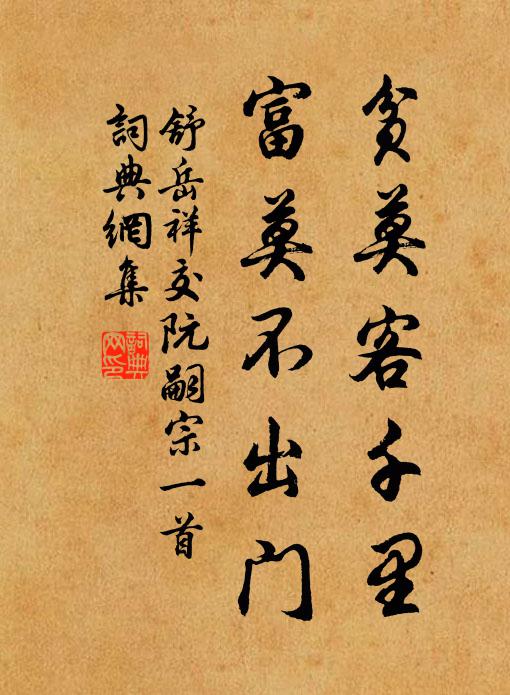 貧莫客千里
富莫不出門
舒岳祥交阮嗣宗一首
詞典網集
詞典
网印